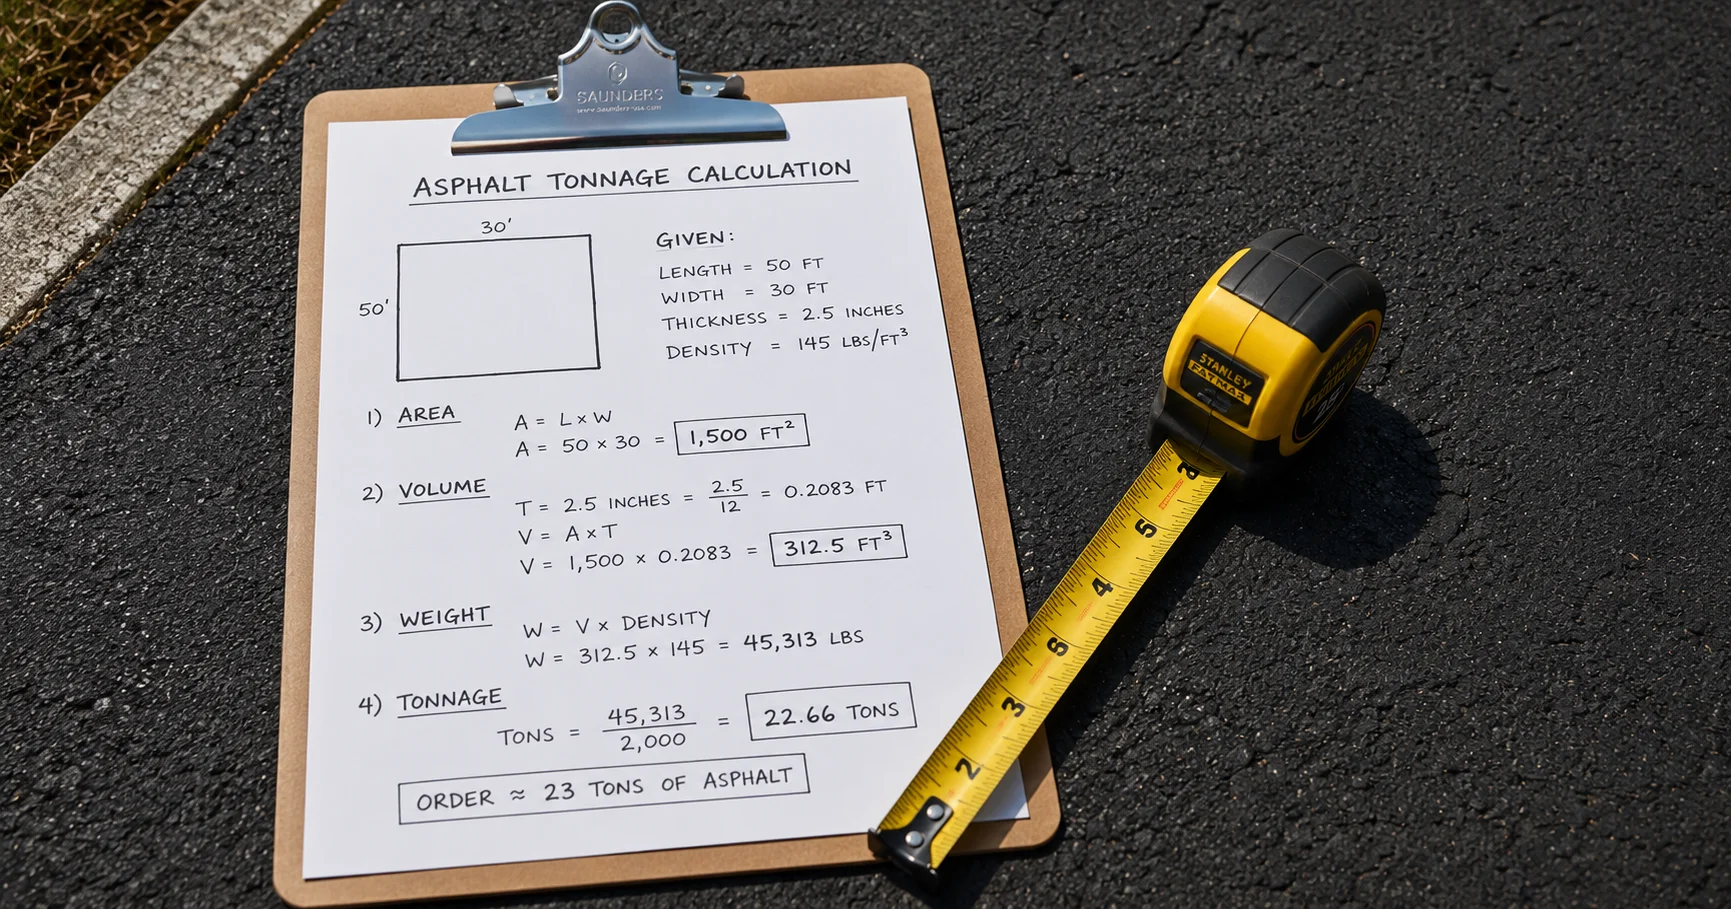 SAUNDERS
ASPHALT TONNAGE CALCULATION
30'
50'
GIVEN:
LENGTH = 50 FT
WIDTH = 30 FT
THICKNESS = 2.5 INCHES
DENSITY = 145 LBS/FT³
1) AREA
A = L × W
A = 50 × 30 = 1,500 FT²
2) VOLUME
T = 2.5 INCHES = 2.5/12 = 0.2083 FT
V = A × T
V = 1,500 × 0.2083 = 312.5 FT³
3) WEIGHT
W = V × DENSITY
W = 312.5 × 145 = 45,313 LBS
4) TONNAGE
TONS = 45,313/2,000 = 22.66 TONS
ORDER ≈ 23 TONS OF ASPHALT
STANLEY
FATMAX
5
4
6
3
2